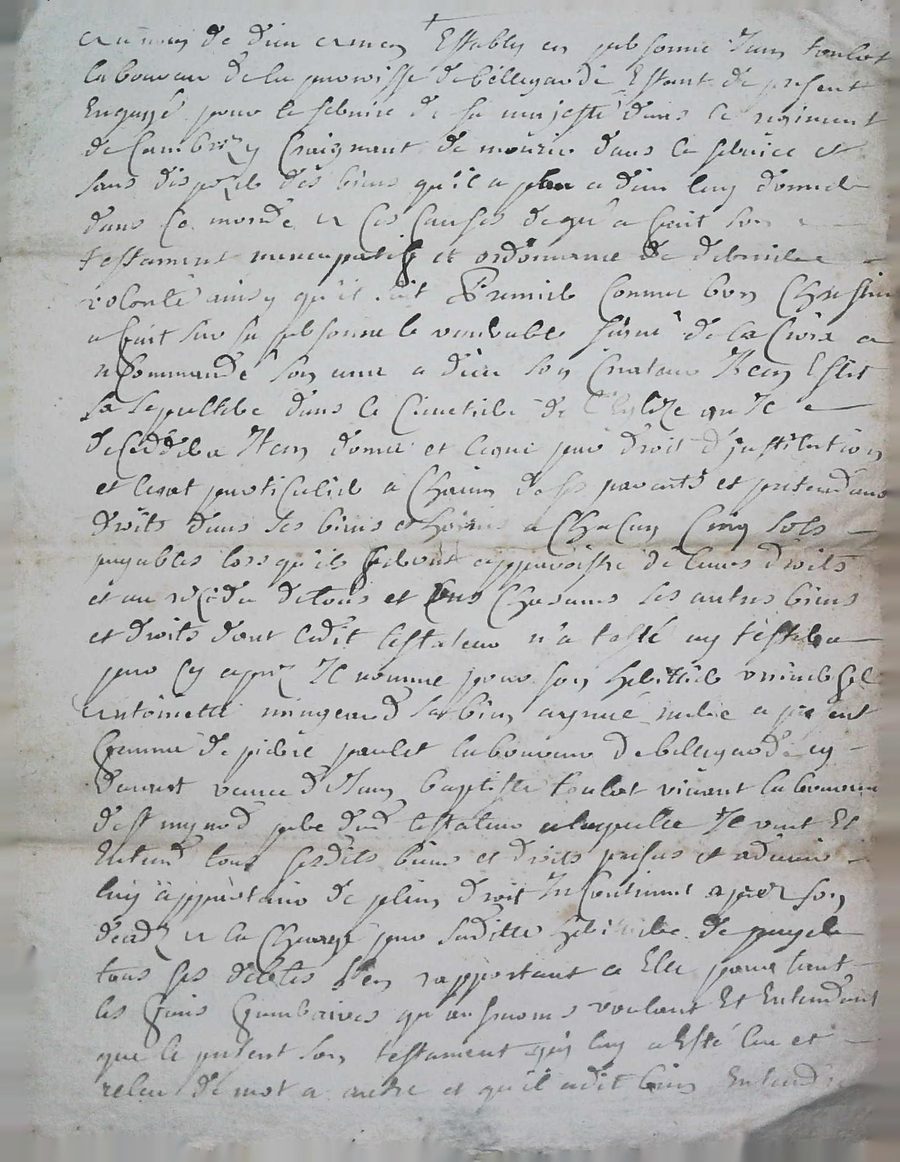 Au nom de dieu amen Estably en personne Jean toulot
laboureur de la parroisse de bellegarde Estant de present
Engagé pour le service de sa majesté dans le regiment
de Cambrezy Craignant de mourir dans le service et
sans disposer des biens qu'il a pleu a dieu luy donner
dans ce monde a ces causes de gré a fait son
testament nuncupatif et ordonnance de derniere
volonté ainsy qu'il suit Premier Comme bon Chrestien
a fait sur sa personne le venerable signe de la Croix a
recommandé son ame a dieu son Createur Item Eslit
sa sepulture dans le Cimetiere de l'Eglize ou Il
deceddera Item donne et legue par droit d'institution
et legat particulier a Chacun de ses parants et pretendans
droits dans ses biens et hoirie a Chacun Cinq sols
payables lorsqu'ils feront apparoistre de leurs droits
et au residu de tous et Uns Chacuns ses autres biens
et droits dont ledit testateur n'a testé ny testera
par cy apres Il nomme pour son heritiere universelle
Antoinette mingeard sa bien aymée mere a present
femme de pierre paulet laboureur de bellegarde cy
devant veuve de Jean baptiste toulot vivant laboureur
de st mynod pere dud testateur a laquelle Il veut Et
Entend tous sesdits biens et droits presens et advenir
luy appartenir de plein droit Incontinent apres son
deceds a la Charge par saditte heritiere de payer
tous ses debtes s'en rapportant a Elle pour tant
les frais funeraires qu'aumosnes voulant Et Entendant
que le present son testament qui luy a Esté leu et
releu de mot a autre et qu'il a dit bien Entendre